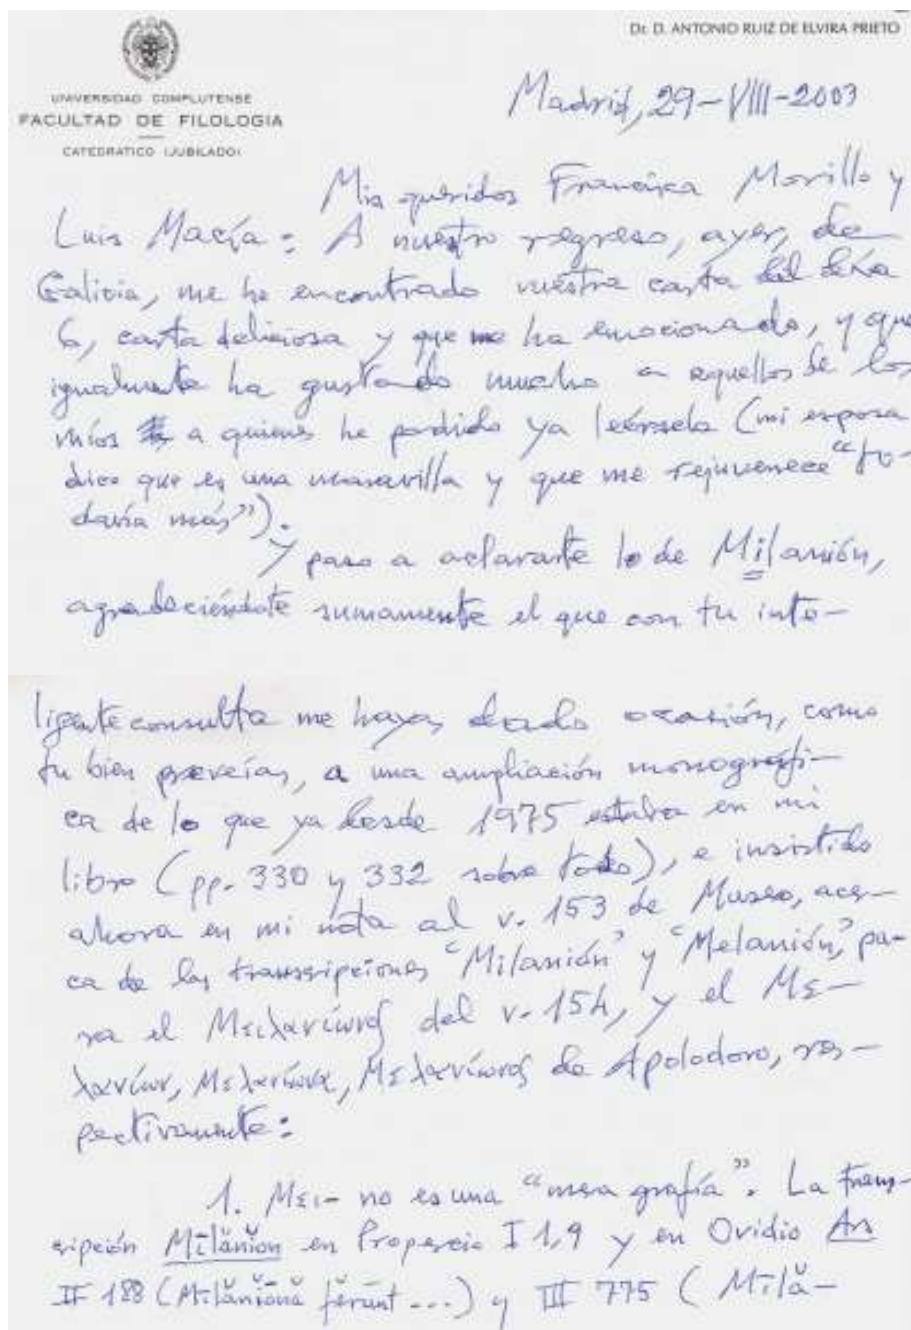 Dr. D. ANTONIO RUIZ DE ELVIRA PRIETO
UNIVERSIDAD COMPLUTENSE
FACULTAD DE FILOLOGIA
CATEDRATICO (JUBILADO)
Madrid, 29-VIII-2003
Mis queridos Francisca Morillo y
Luis Macía: A nuestro regreso, ayer, de
Galicia, me he encontrado vuestra carta del
6, carta deliciosa y que me ha emocionado, y que
igualmente ha gustado mucho a aquellos de los
míos a quienes he podido ya leérsela (mi esposa
dice que es una maravilla y que me rejuvenece "to-
davía más").
Y paso a aclararte lo de Milanión,
agradeciéndote sumamente el que con tu inte-
ligente consulta me hayas dado ocasión, como
tu bien preveías, a una ampliación monográfi-
ca de lo que ya desde 1975 estaba en mi
libro (pp. 330 y 332 sobre todo), e insistido
ahora en mi nota al v. 153 de Museo, acer-
ca de las transcripciones "Milanión" y "Melanión", pa-
ra el Μειλανίωνος del v. 154, y el Με-
λανίων, Μελανίωνα, Μελανίωνος de Apolodoro, res-
pectivamente:
1. Μει- no es una "mera grafía". La trans-
cripción Mīlănĭon en Propercio I 1,9 y en Ovidio Ars
II 188 (Mīlănĭōnă fĕrunt ...) y III 775 (Mīlă-